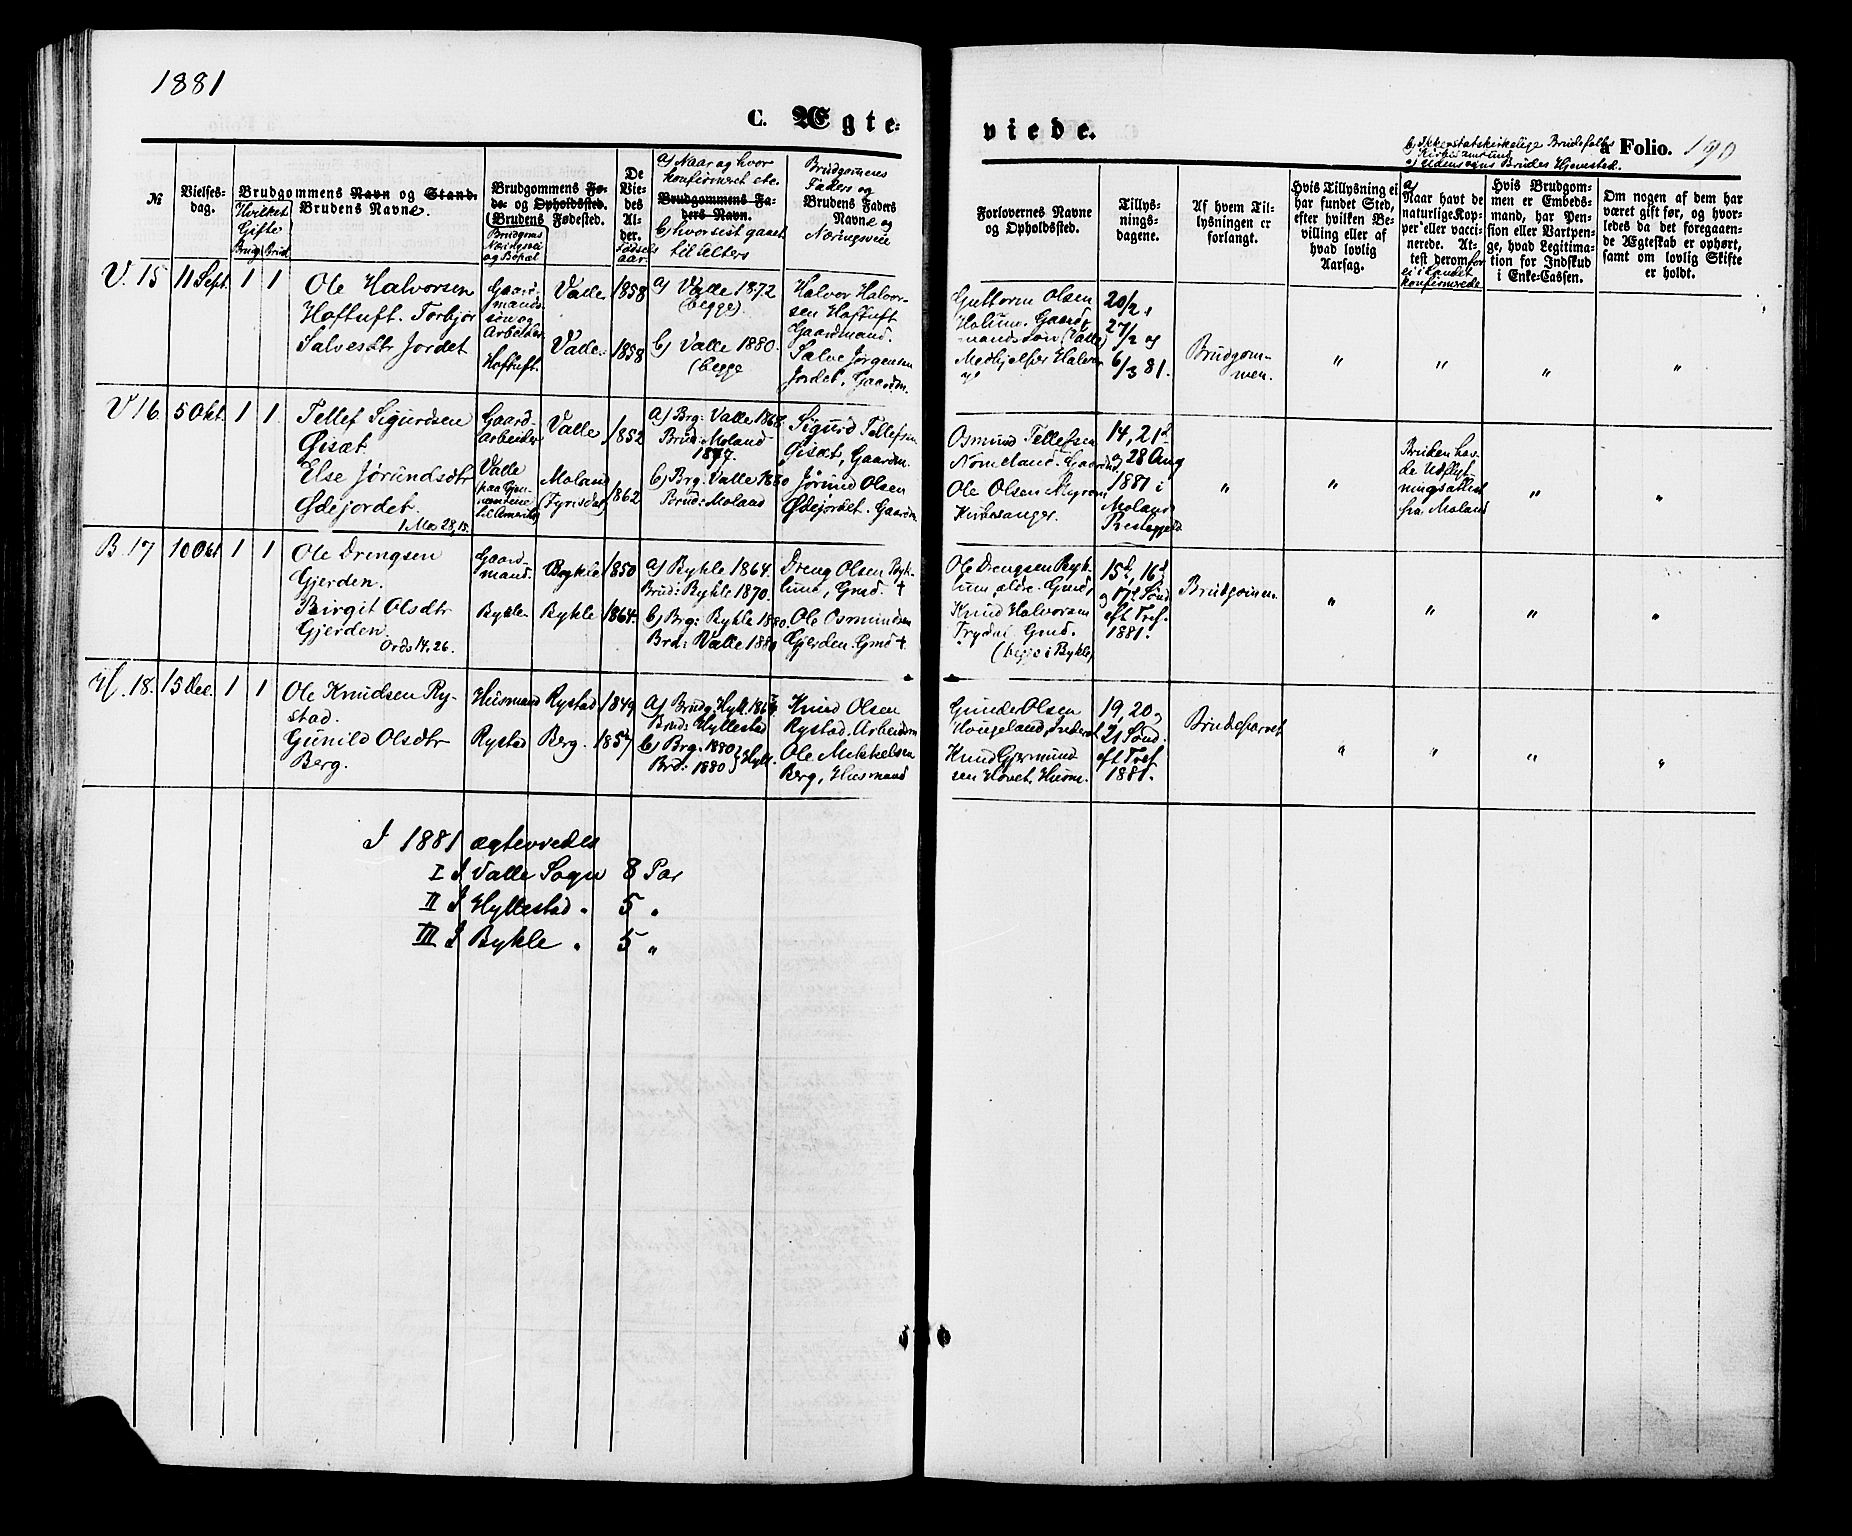 1881
C. Ægte-
viede.
b) Ikkestatskirkelige Brudefolks
à Folio. 190
c) Udensogns Brudes Hjemsted.
№
Vielses-
dag.
Hvilket
Gifte
Brudg. Brud.
Brudgommens Navn og Stand.
Brudens Navne.
Brudgommens Fø-
de- og Opholdssted.
(Brudens Fødested.
Brudgoms
Næringsvei
og Bopæl
De
Vie-
des
Al-
der.
Fødsels
aar
a) Naar og hvor
konfirmeret etc.
Brudgommens Fa-
ders Navn.
b) hvorsist gaaet
til Alters
Brudgommens
Faders og
Brudens Faders
Navne og
Næringsveie
Forlovernes Navne
og Opholdssted.
Tillys-
nings-
dagene.
Af hvem Til-
lysningen er
forlangt.
Hvis Tillysning ei
har fundet Sted,
efter hvilken Be-
villing eller af
hvad lovlig
Aarsag.
a)
Naar havt de
naturlige Kop-
per eller vacci-
nerede. At-
test derom for
ei i Landet
konfirmerede
Hvis Brudgom-
men er Embeds-
mand, har Pen-
sion eller Vartpen-
ge, hvad Legitima-
tion for Indskud
i Enke-Cassen.
Om nogen af dem har
været gift før, og hvor-
ledes da det foregaaen-
de Ægteskab er ophørt,
samt om lovlig Skifte
er holdt.
V. 15 11 Sept. 1 1
Ole Halvorsen
Hoftuft. Torbjør
Salvesdtr Jordet
Gaard-
mands-
søn og
Arbeider
Hoftuft.
Valle 1858
Valle. 1858
a) Valle 1872
(begge).
b) Valle 1880.
(begge
Halvor Halvor-
sen Hoftuft
Gaardmand.
Salve Jørgensen
Jordet, Gaardm.
Guttorm Olsen
Holum. Gaard-
mandssøn (Valle)
Medhjelper Halvor
20/2,
27/2 og
6/3 81.
Brudgom-
men.
" " " "
V 16 5 Okt. 1 1.
Tellef Sigurdsen
Øisæt.
Else Jørundsdtr
Ødejordet.
1 Mos 28, 15.
Gaard-
arbeider
Valle
(paa Gjen-
nemreise
til Amerika)
Valle 1852
Moland
(Fyrisdal) 1862
a) Brg: Valle 1868
Brud: Moland
1877.
b) Brg: Valle 1880
Brud: Moland
Sigurd Tellefsen
Øisæt, Gaardm.
Jørund Olsen
Ødejordet. Gaardm.
Osmund Tellefsen
Nomeland. Gaardmd.
Ole Olsen Myrom
Kirkesanger.
14, 21d
og 28 Aug
1881 i
Moland
Prestegjeld
" "
Bruden hav-
de Udflyt-
ningsattest
fra Moland
" "
B. 17 10 Okt 1 1
Ole Drengsen
Gjerden.
Birgit Olsdtr
Gjerden.
Ords 14, 26.
Gaard-
mand.
Bykle.
Bykle 1850
Bykle 1864.
a) Bykle 1864.
Brud: Bykle 1870.
b) Brg: Bykle 1880.
Brd: Valle 1880
Dreng Olsen Byk-
lum, Gmd. +
Ole Osmundsen
Gjerden. Gmd +
Ole Drengsen Byk-
lum, ældre. Gmd,
Knud Halvorsen
Trydal Gmd.
(begge i Bykle)
15d, 16d
og 17d Sønd
eft Tref.
1881.
Brudgommen.
" " " "
H. 18. 15 Dec. 1 1
Ole Knudsen Ry-
stad.
Gunild Olsdtr
Berg.
Husmand
Rystad
Rystad 1849
Berg. 1857
a) Brudg. Hyll. 1864
Brud: Hyllestad
b) Brg. 1880 } Hyll.
Brd: 1880
Knud Olsen
Rystad. Arbeidsm
Ole Mikkelsen
Berg, Husmand
Gunder Olsen
Hougeland, Inderst
Knud Gjermund
sen Hovet, Husm.
19, 20,
21 Sønd
eft Tref
1881.
Brudeparret
" " " "
I 1881 ægteviedes
I I Valle Sogn 8 Par
II I Hyllestad " 5 "
III I Bykle " 5 "